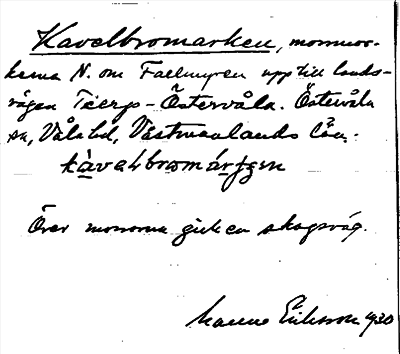 Kavelbromarken, mommor-
kerna N. om Fallmyren upp till lands-
vägen Tierp - Östervåla. Östervåla
sn, Våla hd, Västmanlands län.
kàvəlbromárjən
Över mommorna gick en skogsväg.
Manne Eriksson 1930